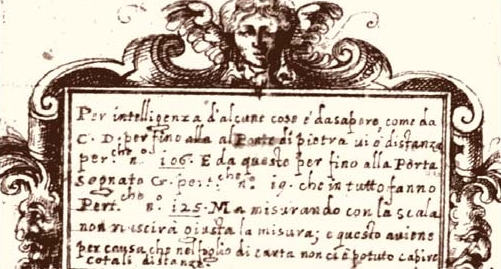 Per intelligenza d'alcune cose é da sapere, come da
C. D. per fino alla al Ponte di pietra vi é distanza
per.che nº 106. E da questo per fino alla Porta
segnato G. per.che nº 19. che in tutto fanno
Pert.che nº 125. Ma misurando con la scala
non riuscirà giusta la misura; e questo aviene
per causa, che nel foglio di carta non ci é potuto capire
cotali distanze.